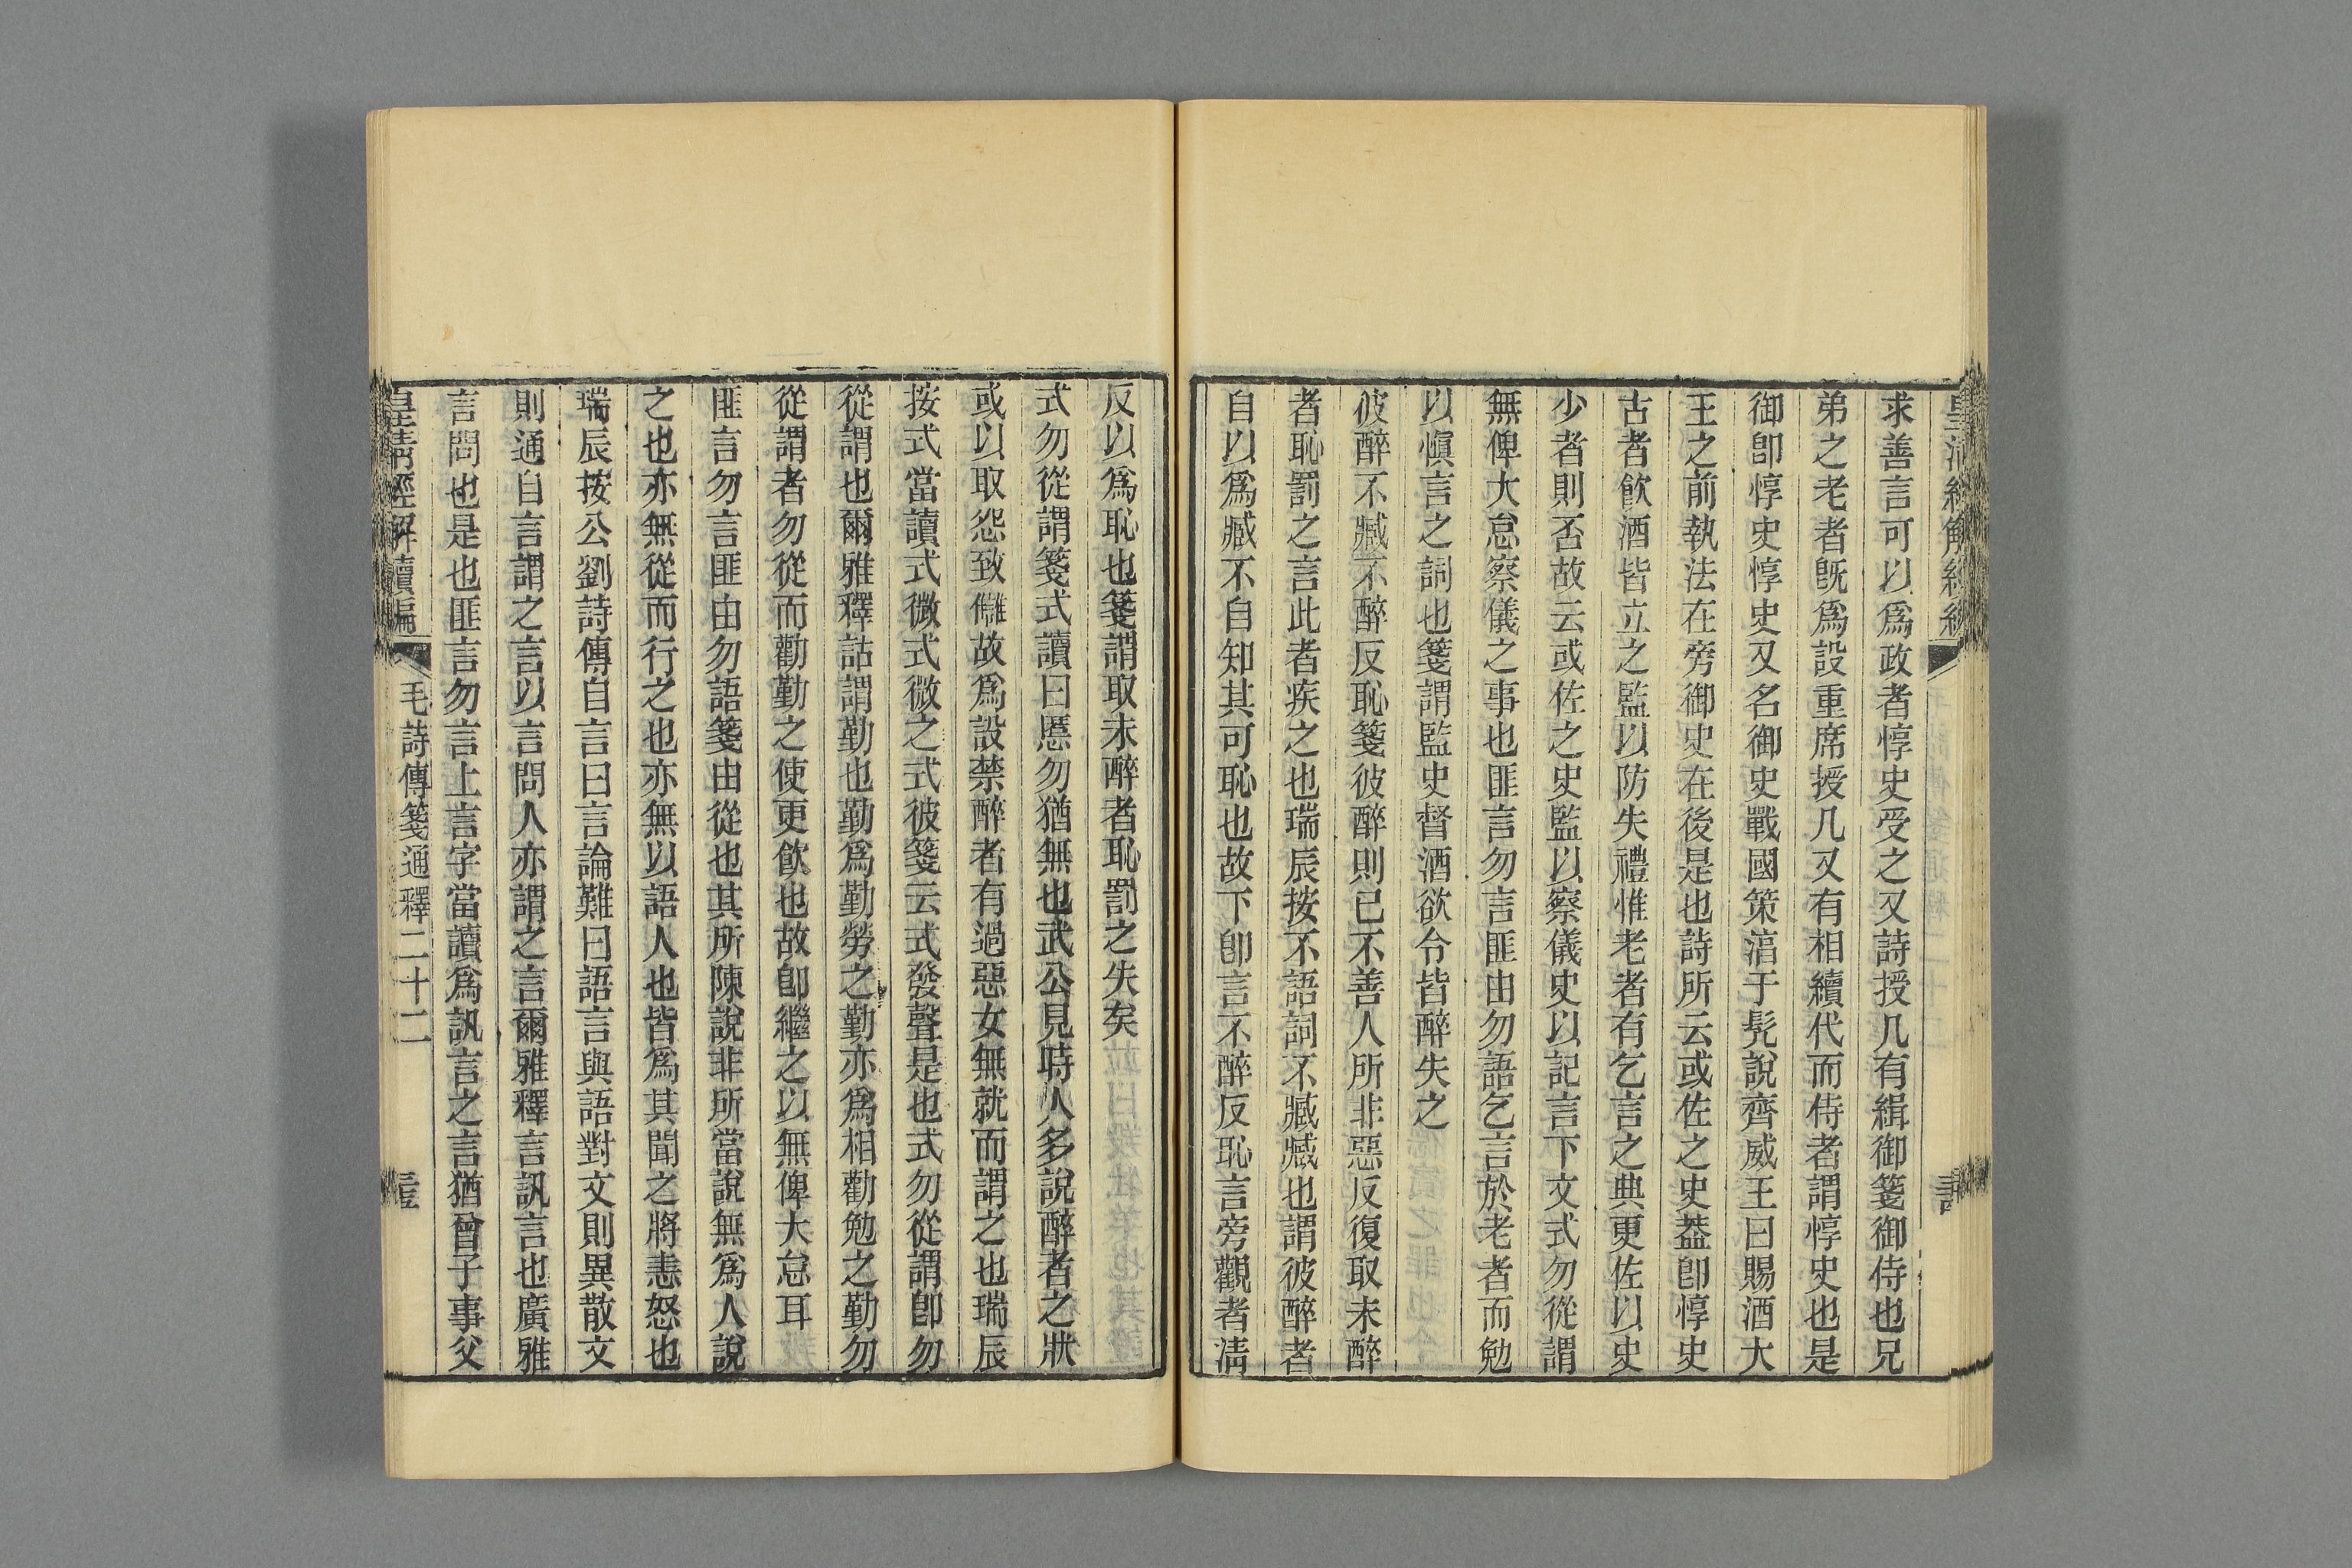 求善言可以爲政者惇史受之又詩授几有緝御箋御侍也兄
弟之老者旣爲設重席授几又有相續代而侍者謂惇史也是
御卽惇史惇史又名御史戰國策湻于髠說齊威王曰賜酒大
王之前執法在旁御史在後是也詩所云或佐之史葢卽惇史
古者飮酒皆立之監以防失禮惟老者有乞言之典更佐以史
少者則否故云或佐之史監以察儀史以記言下文式勿從謂
無俾大怠察儀之事也匪言勿言匪由勿語乞言於老者而勉
以愼言之詞也箋謂監史督酒欲令皆醉失之
彼醉不臧不醉反恥箋彼醉則已不善人所非惡反復取未醉
者恥罰之言此者疾之也瑞辰按不語詞不臧臧也謂彼醉者
自以爲臧不自知其可恥也故下卽言不醉反恥言旁觀者淸
反以爲恥也箋謂取未醉者恥罰之失矣
式勿從謂箋式讀曰慝勿猶無也武公見時人多說醉者之狀
或以取怨致讎故爲設禁醉者有過惡女無就而謂之也瑞辰
按式當讀式微式微之式彼箋云式發聲是也式勿從謂卽勿
從謂也爾雅釋詁謂勤也勤爲勤勞之勤亦爲相勸勉之勤勿
從謂者勿從而勸勤之使更飮也故卽繼之以無俾大怠耳
匪言勿言匪由勿語箋由從也其所陳說非所當說無爲人說
之也亦無從而行之也亦無以語人也皆爲其聞之將恚怒也
瑞辰按公劉詩傳自言曰言論難曰語言與語對文則異散文
則通自言謂之言以言問人亦謂之言爾雅釋言訊言也廣雅
言問也是也匪言勿言上言字當讀爲訊言之言猶曾子事父
皇淸經解續編 毛詩傳箋通釋二十二